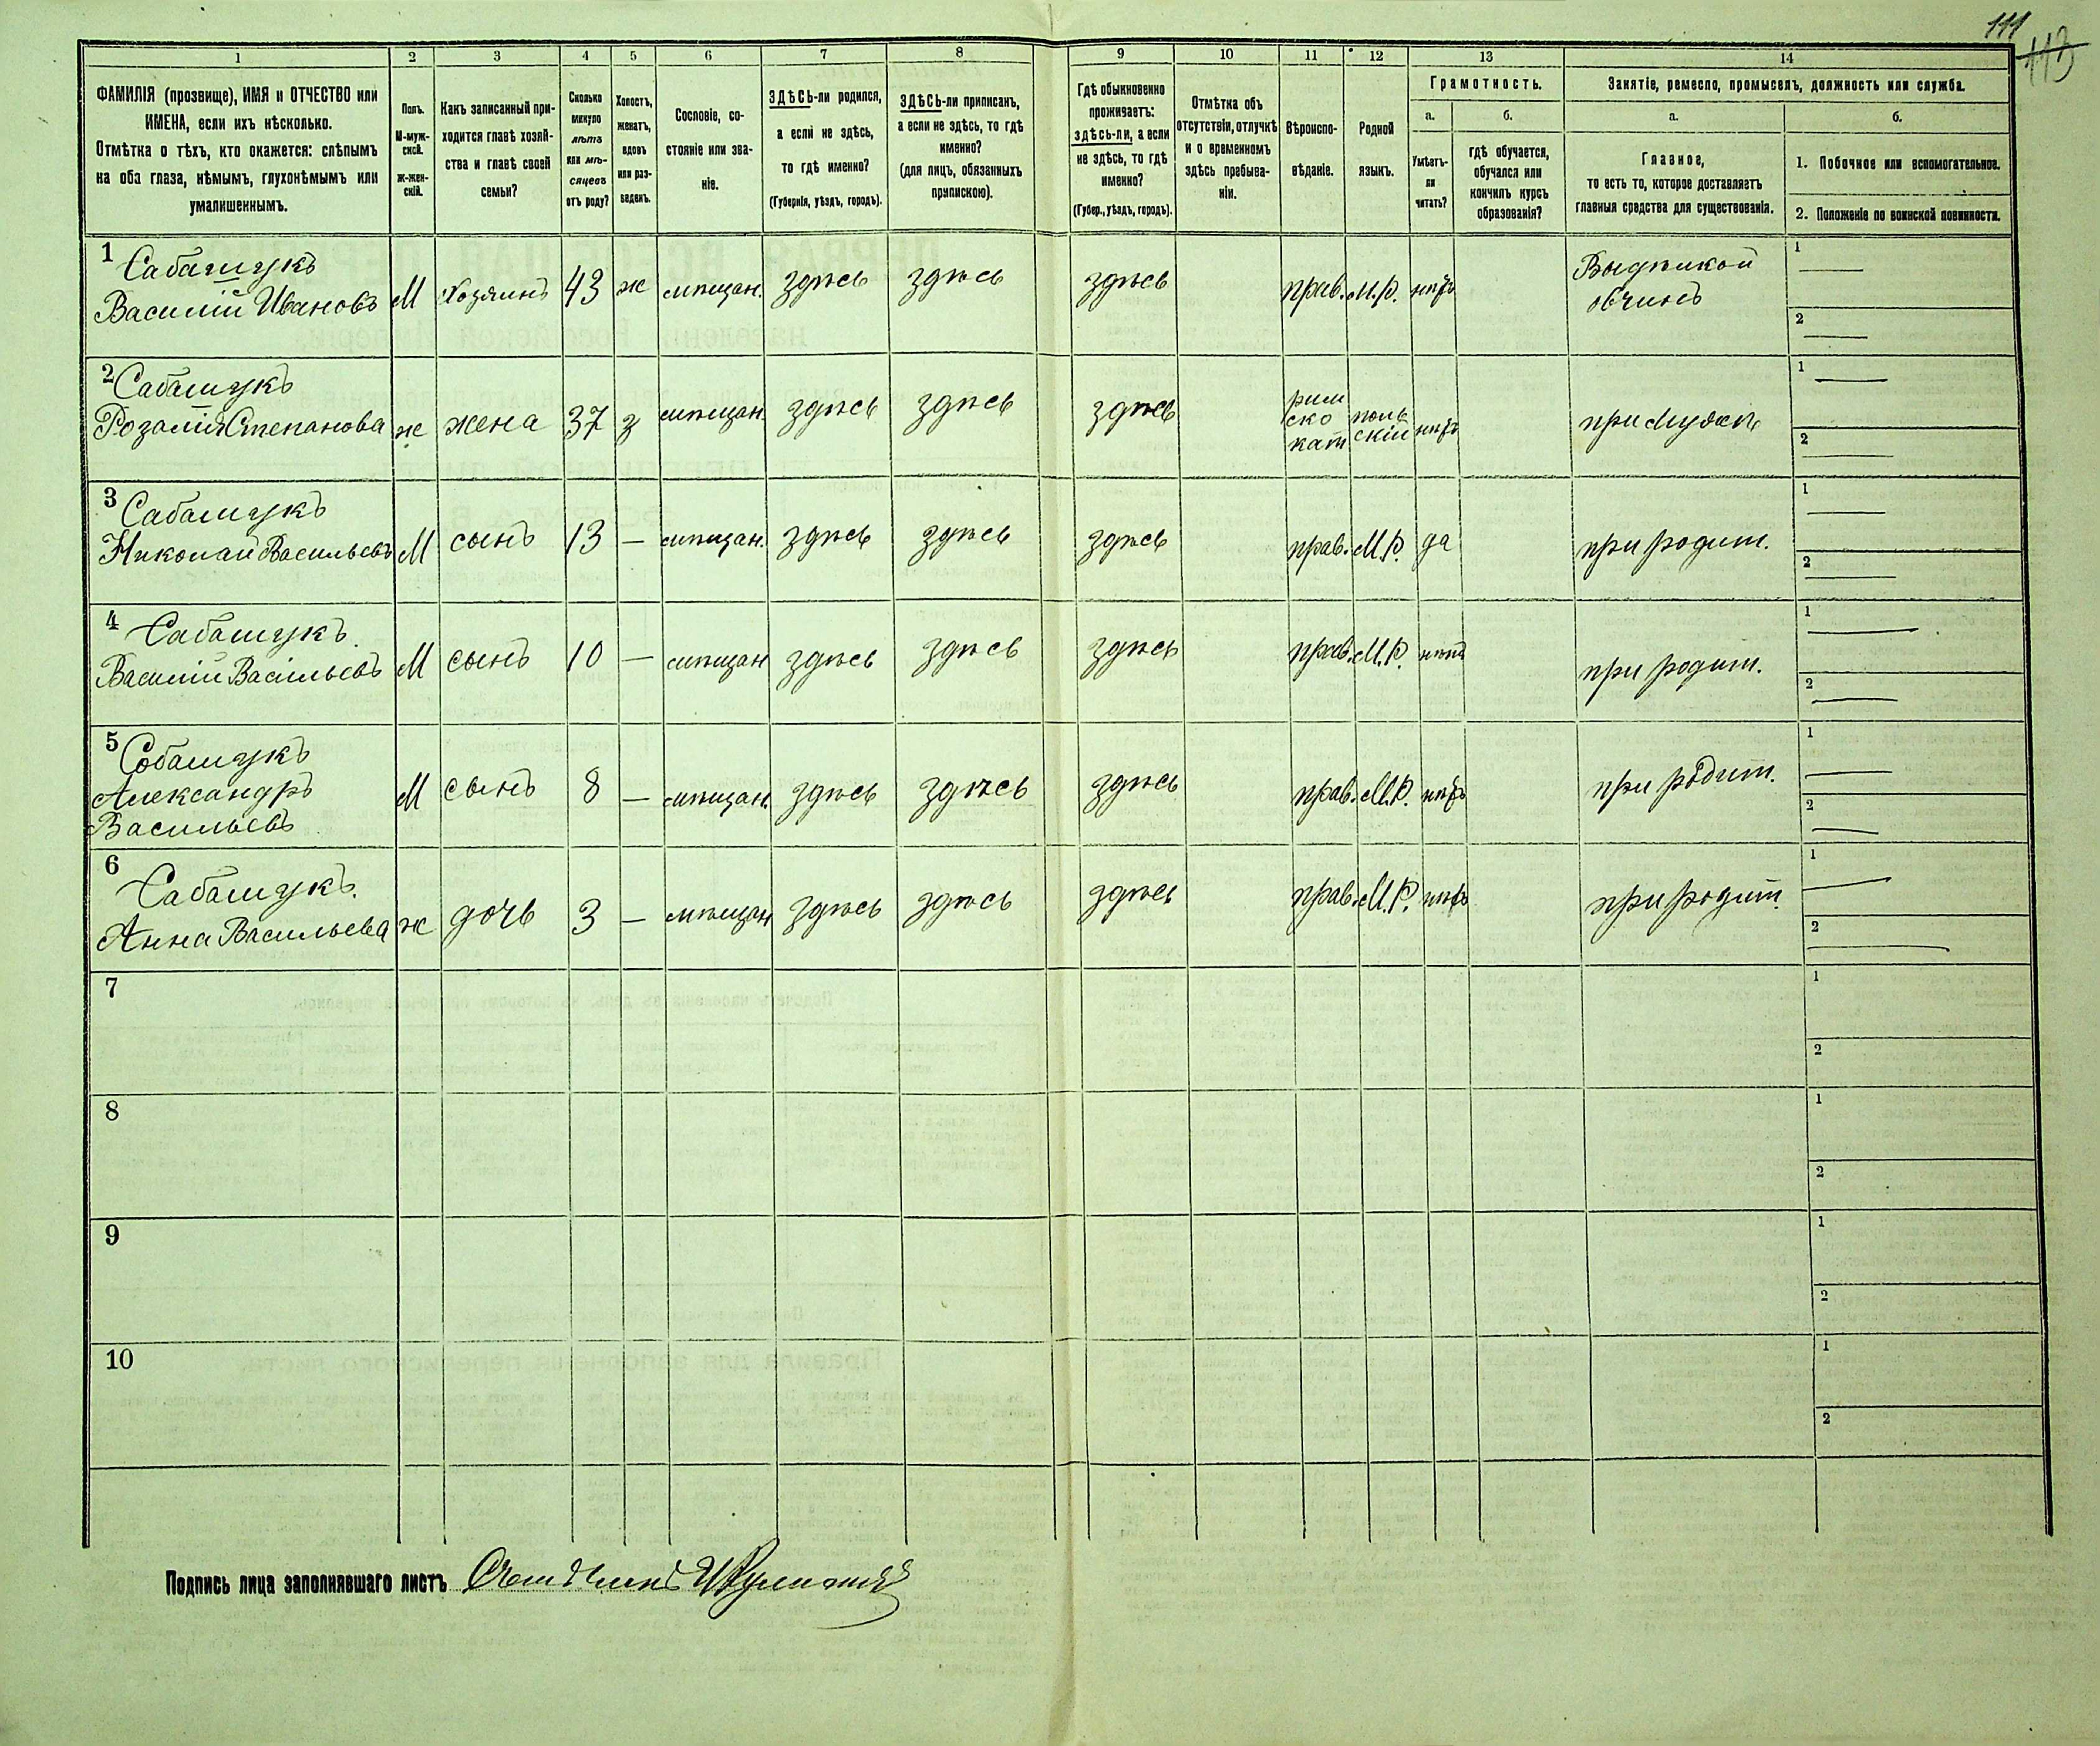 111
113
1 2 3 4 5 6 7 8 9 10 11 12 13 14
ФАМИЛІЯ (прозвище), ИМЯ и ОТЧЕСТВО или
ИМЕНА, если ихъ нѣсколько.
Отмѣтка о тѣхъ, кто окажется: слѣпымъ
на оба глаза, нѣмымъ, глухонѣмымъ или
умалишеннымъ.
Полъ.
М-муж-
ской.
Ж-жен-
скій.
Какъ записанный при-
ходится главѣ хозяй-
ства и главѣ своей
семьи?
Сколько
минуло
лѣтъ
или мѣ-
сяцевъ
отъ роду?
Холостъ,
женатъ,
вдовъ
или раз-
веденъ.
Сословіе, со-
стояніе или зва-
ніе.
ЗДѢСЬ-ли родился,
а если не здѣсь,
то гдѣ именно?
(Губернія, уѣздъ, городъ).
ЗДѢСЬ-ли приписанъ,
а если не здѣсь, то гдѣ
именно?
(для лицъ, обязанныхъ
припискою).
Гдѣ обыкновенно
проживаетъ:
здѣсь-ли, а если
не здѣсь, то гдѣ
именно?
(Губер., уѣздъ, городъ).
Отмѣтка объ
отсутствіи, отлучкѣ
и о временномъ
здѣсь пребыва-
ніи.
Вѣроиспо-
вѣданіе.
Родной
языкъ.
Грамотность.
а.
Умѣетъ-
ли
читать?
б.
гдѣ обучается,
обучался или
кончилъ курсъ
образованія?
Занятіе, ремесло, промыселъ, должность или служба.
а.
Главное,
то есть то, которое доставляетъ
главныя средства для существованія.
б.
1. Побочное или вспомогательное.
2. Положеніе по воинской повинности.
1 Сабашукъ
Василій Ивановъ М Хозяинъ 43 ж мѣщан. здѣсь здѣсь здѣсь прав. М.Р. нѣтъ
овчинъ
1
2
2 Сабашукъ
Розалія Степанова ж жена 37 з мѣщан. здѣсь здѣсь здѣсь
рим
ско
кат
поль
скій
нѣтъ при мужѣ
1
2
3 Сабашукъ
Николай Васильевъ М сынъ 13 — мѣщан. здѣсь здѣсь здѣсь прав. М.Р. да при родит.
1
2
4 Сабашукъ
Василій Васільевъ М сынъ 10 — мѣщан здѣсь здѣсь здѣсь прав. М.Р. нѣтъ при родит.
1
2
5 Собашукъ
Александръ
Васильевъ М сынъ 8 — мѣщан. здѣсь здѣсь здѣсь прав. М.Р. нѣтъ при родит.
1
2
6 Сабашукъ
Анна Васильева ж дочь 3 — мѣщан здѣсь здѣсь здѣсь прав. М.Р. нѣтъ при родит.
1
2
7
1
2
8
1
2
9
1
2
10
1
2
Подпись лица заполнявшаго листъ